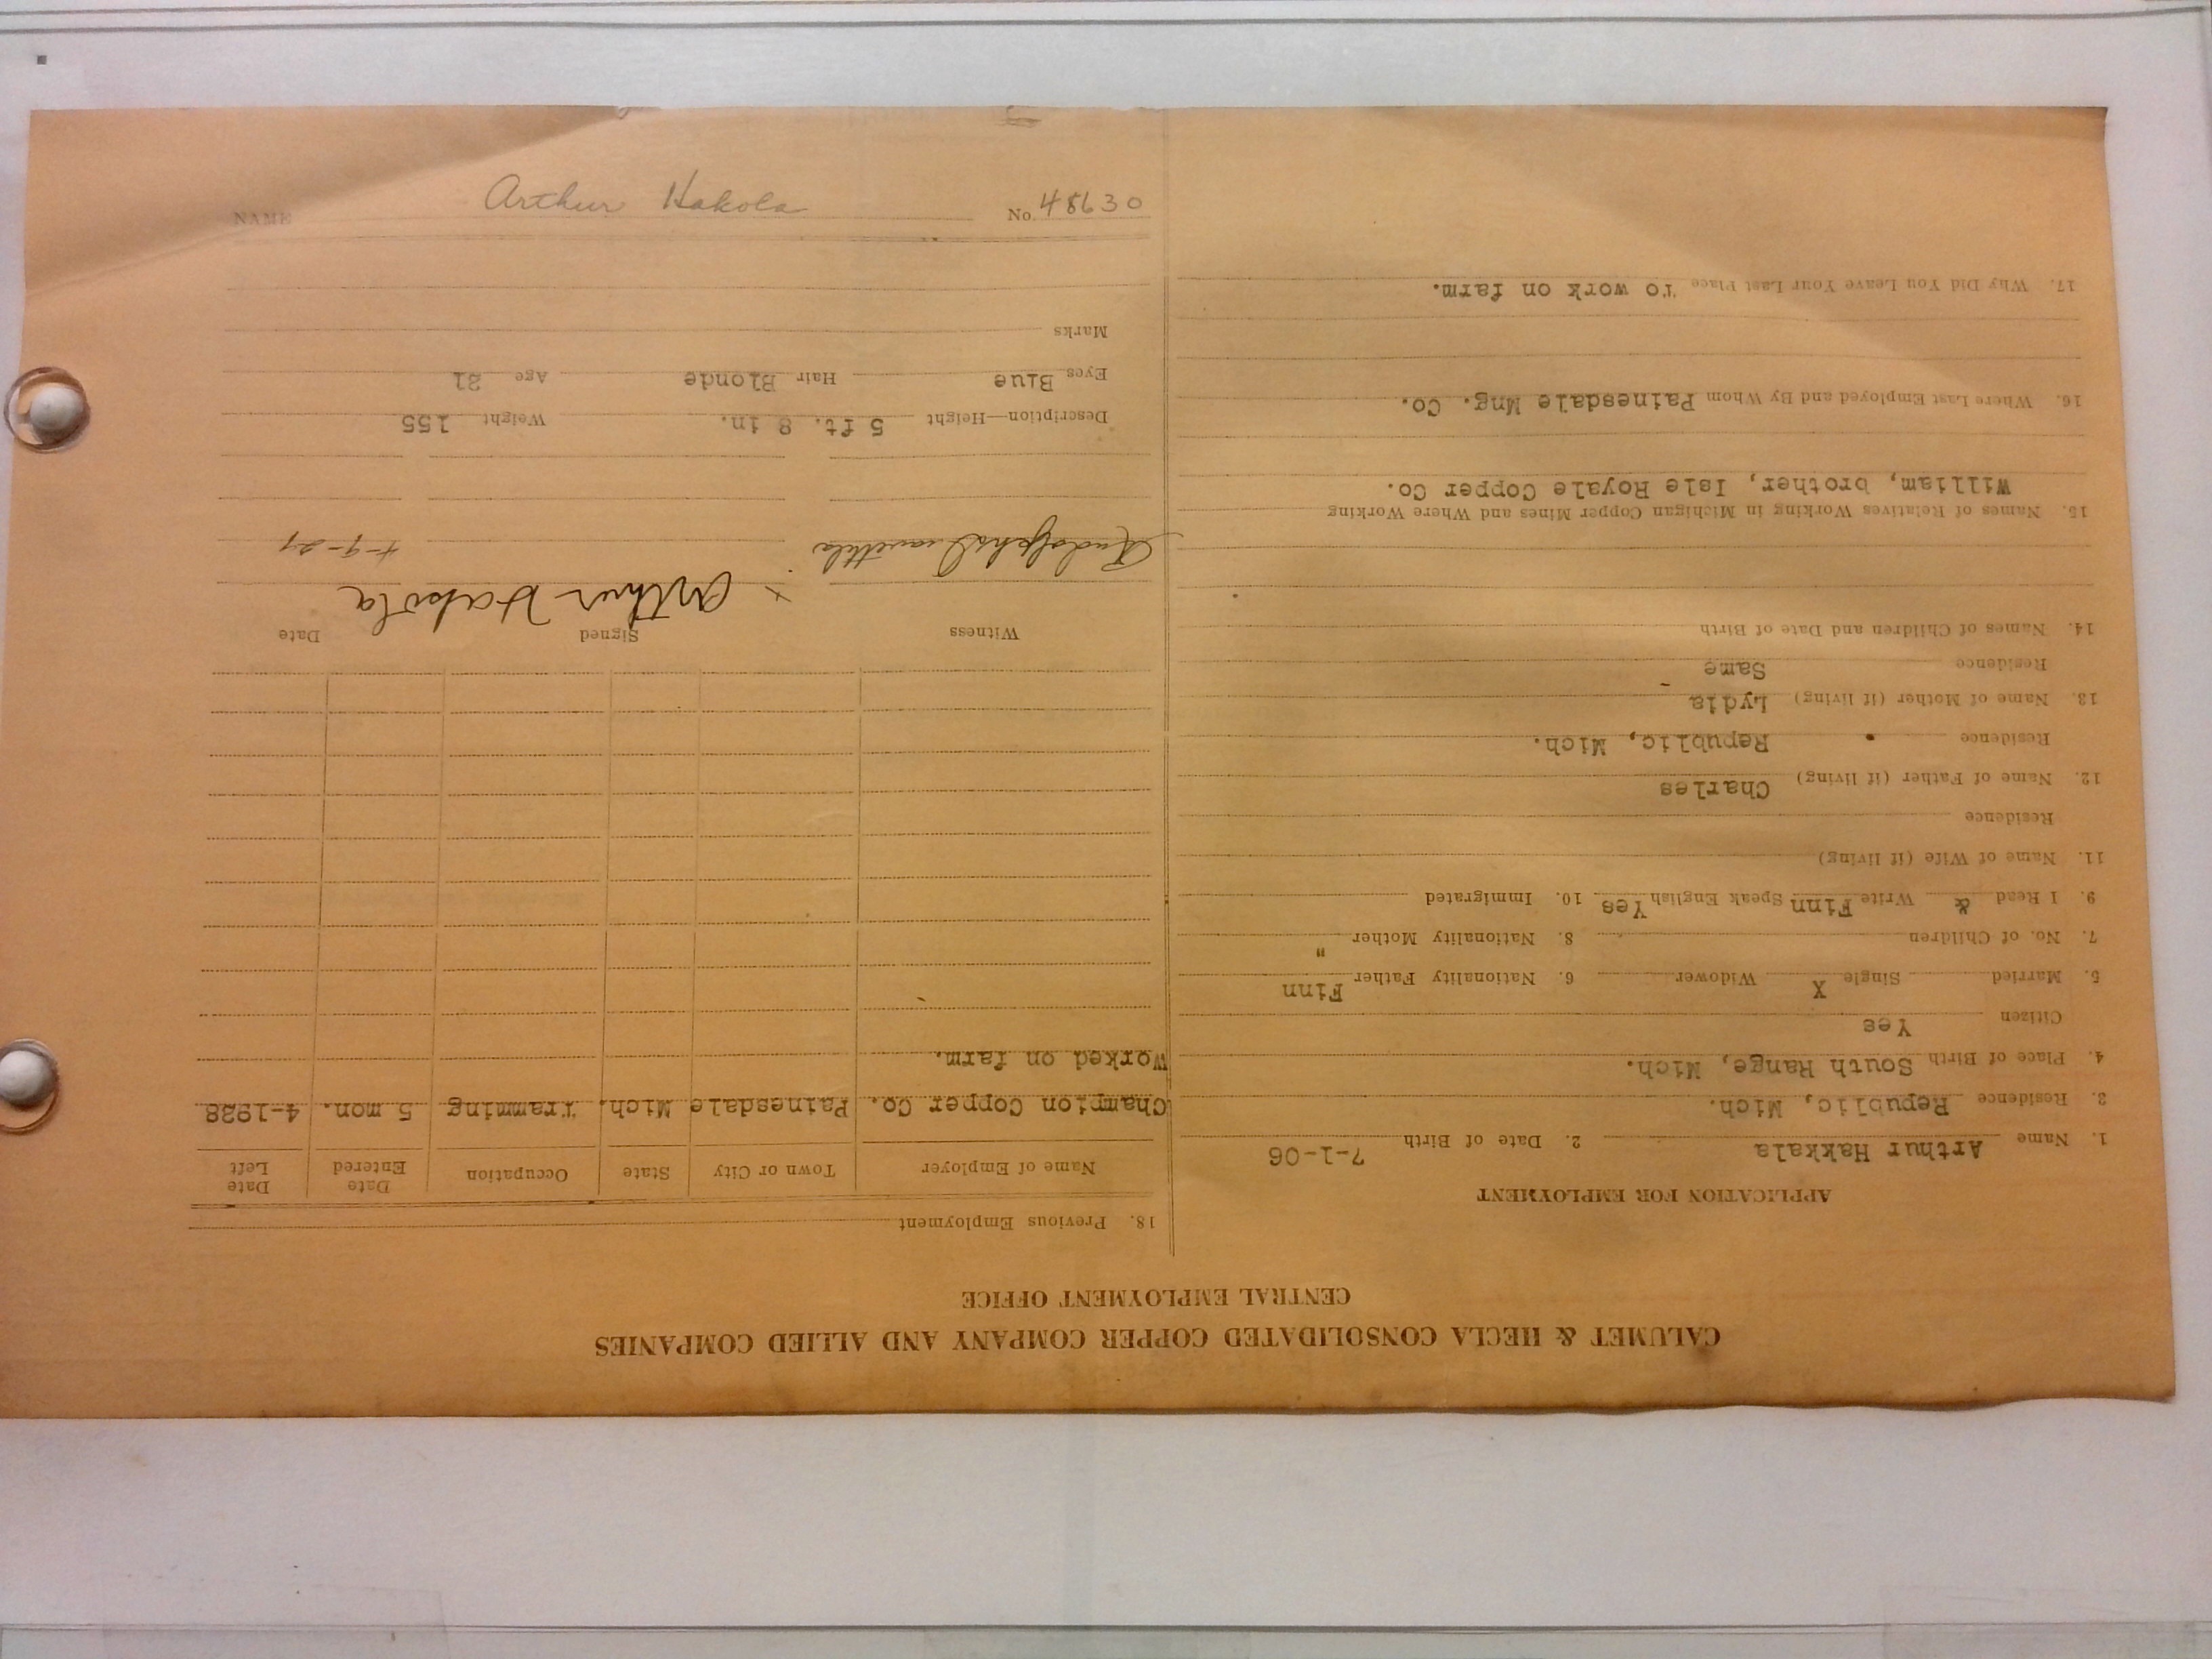 CALUMET & HECLA CONSOLIDATED COPPER COMPANY AND ALLIED COMPANIES
CENTRAL EMPLOYMENT OFFICE
APPLICATION FOR EMPLOYMENT
1. Name Arthur Hakkala 2. Date of Birth 7-1-06
3. Residence Republic, Mich.
4. Place of Birth South Range, Mich.
Citizen Yes
5. Married Single X Widower 6. Nationality Father Finn
7. No. of Children 8. Nationality Mother "
9. I Read & Write Finn Speak English Yes 10. Immigrated
11. Name of Wife (if living)
Residence
12. Name of Father (if living) Charles
Residence Republic, Mich.
13. Name of Mother (if living) Lydia
Residence Same
14. Names of Children and Date of Birth
15. Names of Relatives Working in Michigan Copper Mines and Where Working
William, brother, Isle Royale Copper Co.
16. Where Last Employed and By Whom Painesdale Mng. Co.
17. Why Did You Leave Your Last Place To work on farm.
18. Previous Employment
Name of Employer Town or City State Occupation Date Entered Date Left
Champion Copper Co. Painesdale Mich. Tramming 5 mon. 4-1928
Worked on farm.
Witness Signed Date
x Arthur Hakola
4-9-29
Description—Height 5 ft. 8 in. Weight 155
Eyes Blue Hair Blonde Age 21
Marks
NAME Arthur Hakola No. 48630